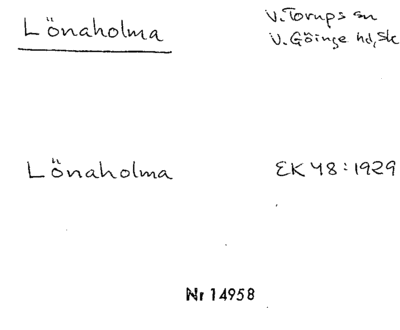 Lönaholma V. Torups sn
V. Göinge hd, Sk
Lönaholma EK 48:1929
Nr 14958